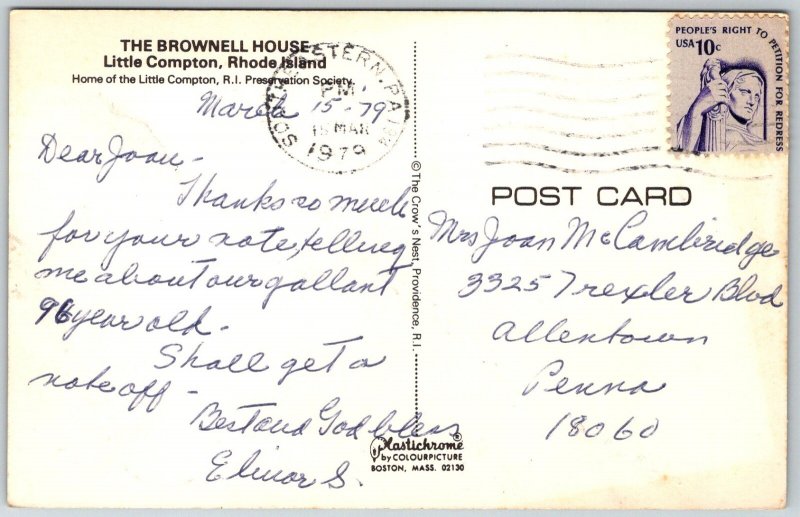 THE BROWNELL HOUSE
Little Compton, Rhode Island
Home of the Little Compton, R.I. Preservation Society.
March 15-79
Dear Joan -
Thanks so much
for your note, telling
me about our gallant
96 year old -
Shall get a
note off -
Best and God bless
Elinor S.
SOUTHEASTERN, PA
PM
15 MAR
1979
© The Crow's Nest, Providence, R.I.
Plastichrome®
by COLOURPICTURE
BOSTON, MASS. 02130
PEOPLE'S RIGHT TO PETITION FOR REDRESS
USA 10c
POST CARD
Mrs Joan McCambridge
3325 Trexler Blvd
Allentown
Penna
18060